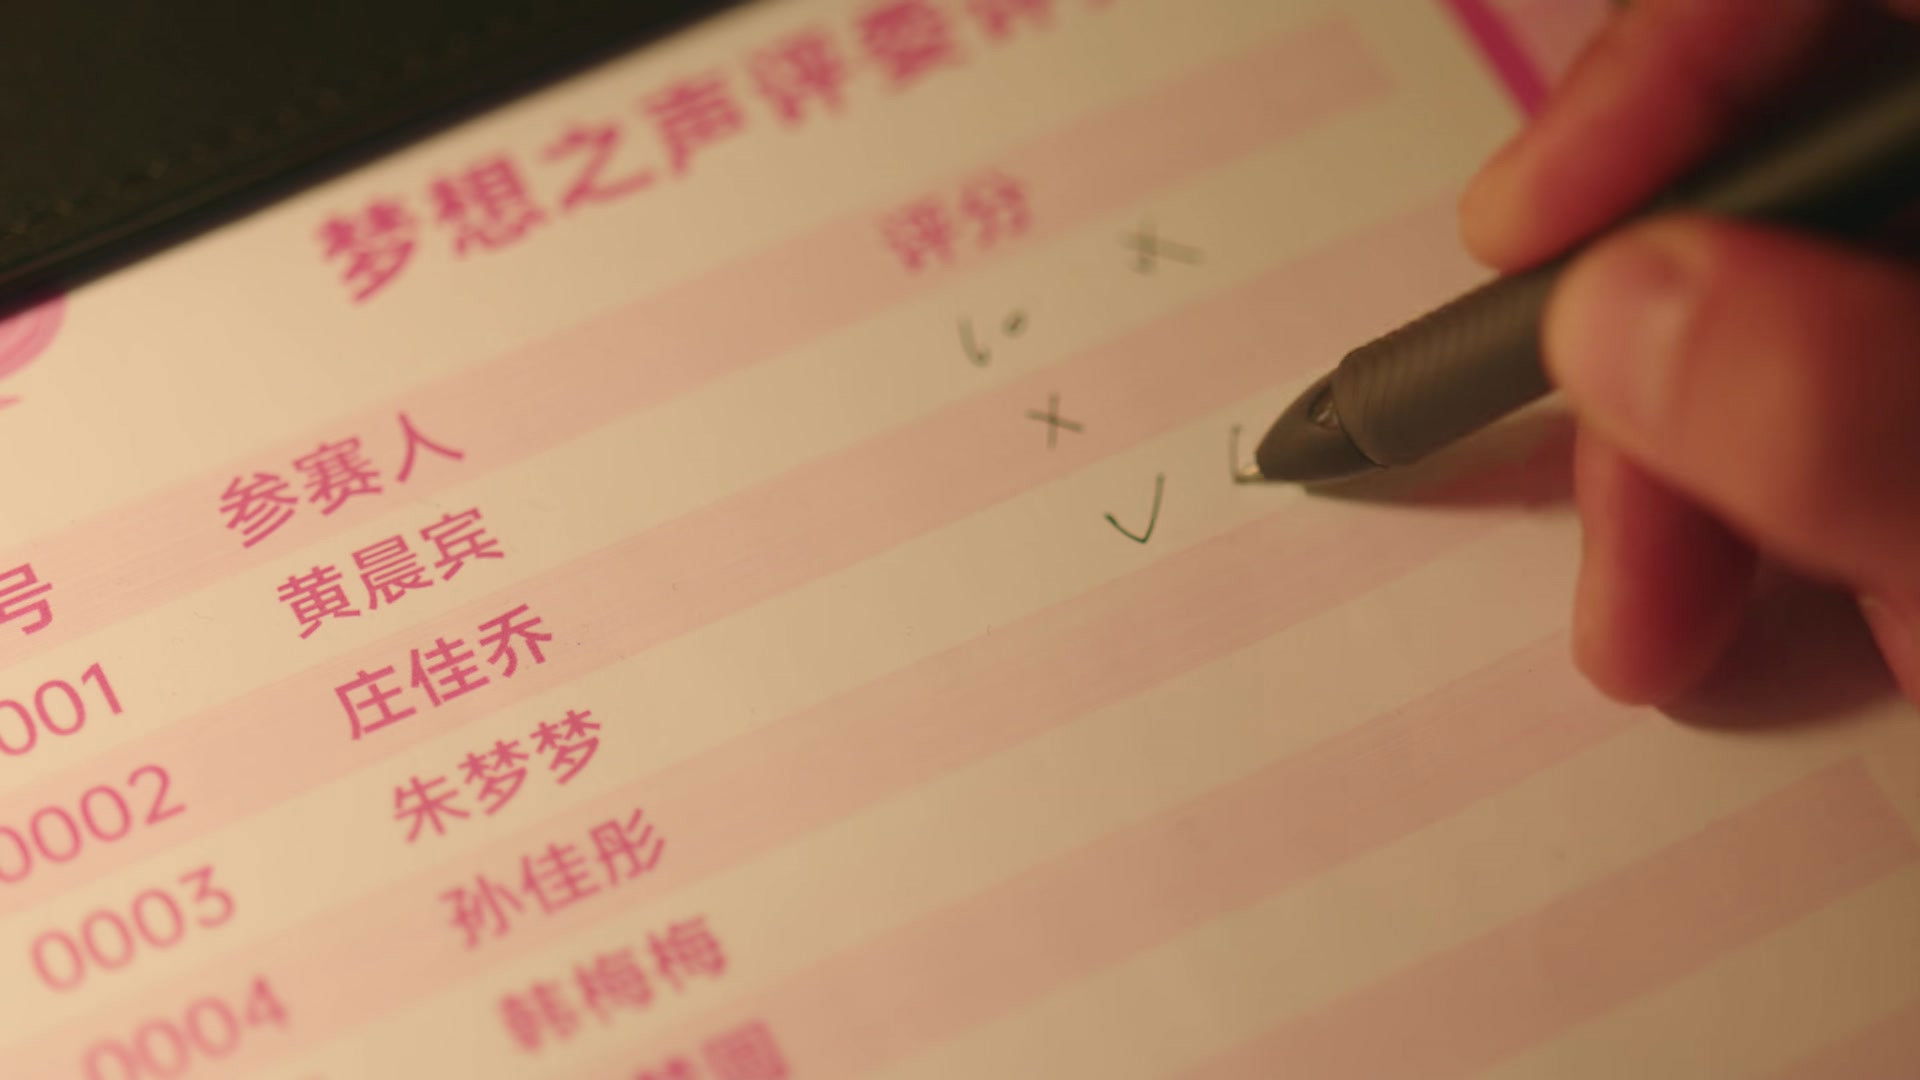 梦想之声评委评
号 参赛人 评分
001 黄晨宾 60 ×
0002 庄佳乔 ×
0003 朱梦梦 ✓
0004 孙佳彤
韩梅梅